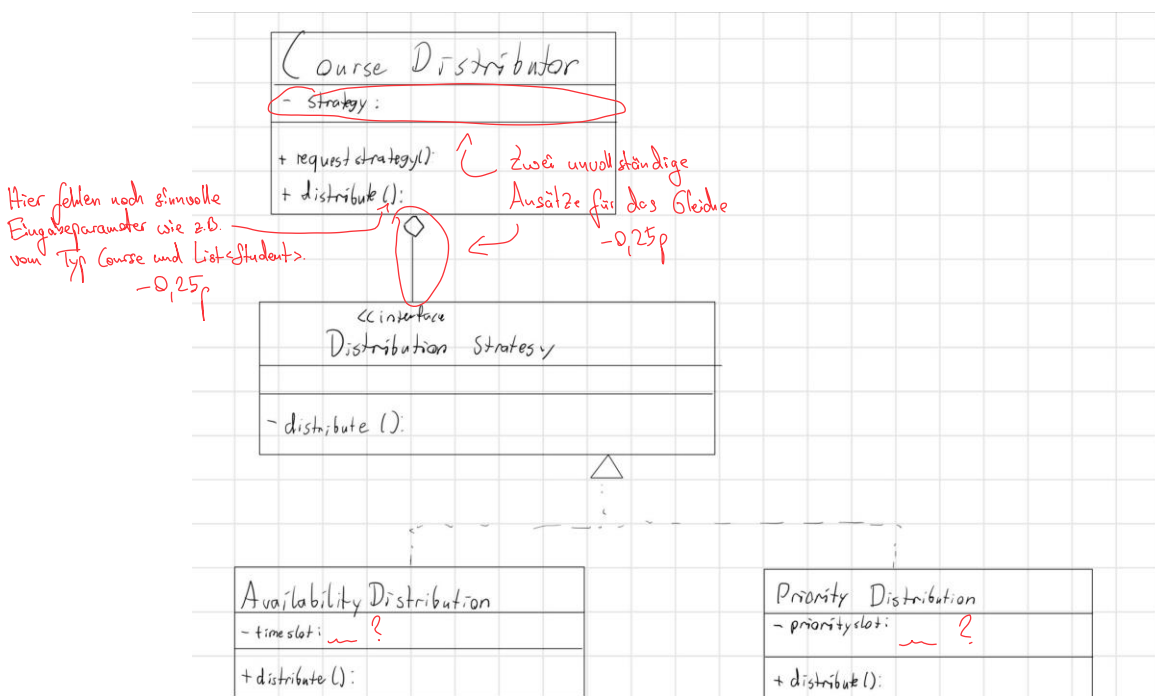 Course Distributor
- strategy:
+ requeststrategy():
+ distribute():
Zwei unvollständige
Ansätze für das Gleiche
-0,25p
Hier fehlen noch sinnvolle
Eingabeparameter wie z.B.
vom Typ Course und List<Student>.
-0,25p
<<interface
Distribution Strategy
- distribute():
Availability Distribution
- timeslot: ?
+ distribute():
Priority Distribution
- priorityslot: ?
+ distribute():